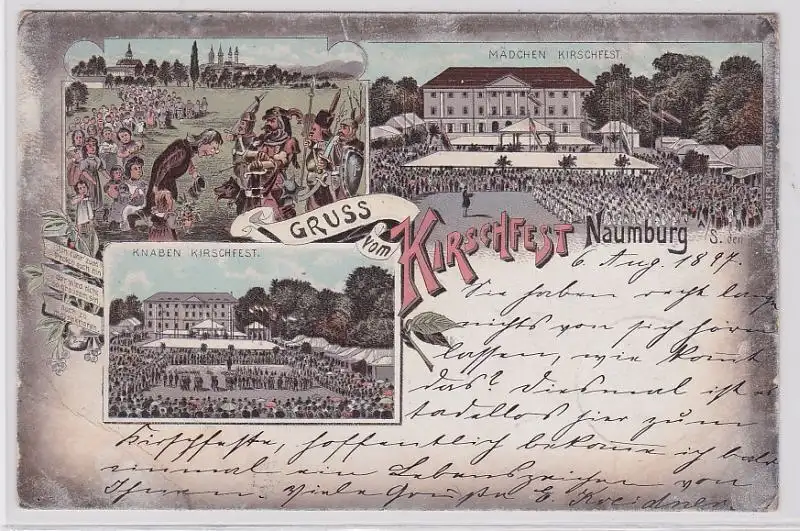 MÄDCHEN KIRSCHFEST.
GRUSS
vom
KIRSCHFEST Naumburg a/S. den
KNABEN KIRSCHFEST.
6. Aug. 1897.
Sie haben recht lange
nichts von sich hören
lassen, wie kommt
das? Diesmal ist es
tadellos hier zum
Kirschfeste, hoffentlich bekomme ich bald
einmal ein Lebenszeichen von
Ihnen. Viele Grüße E.